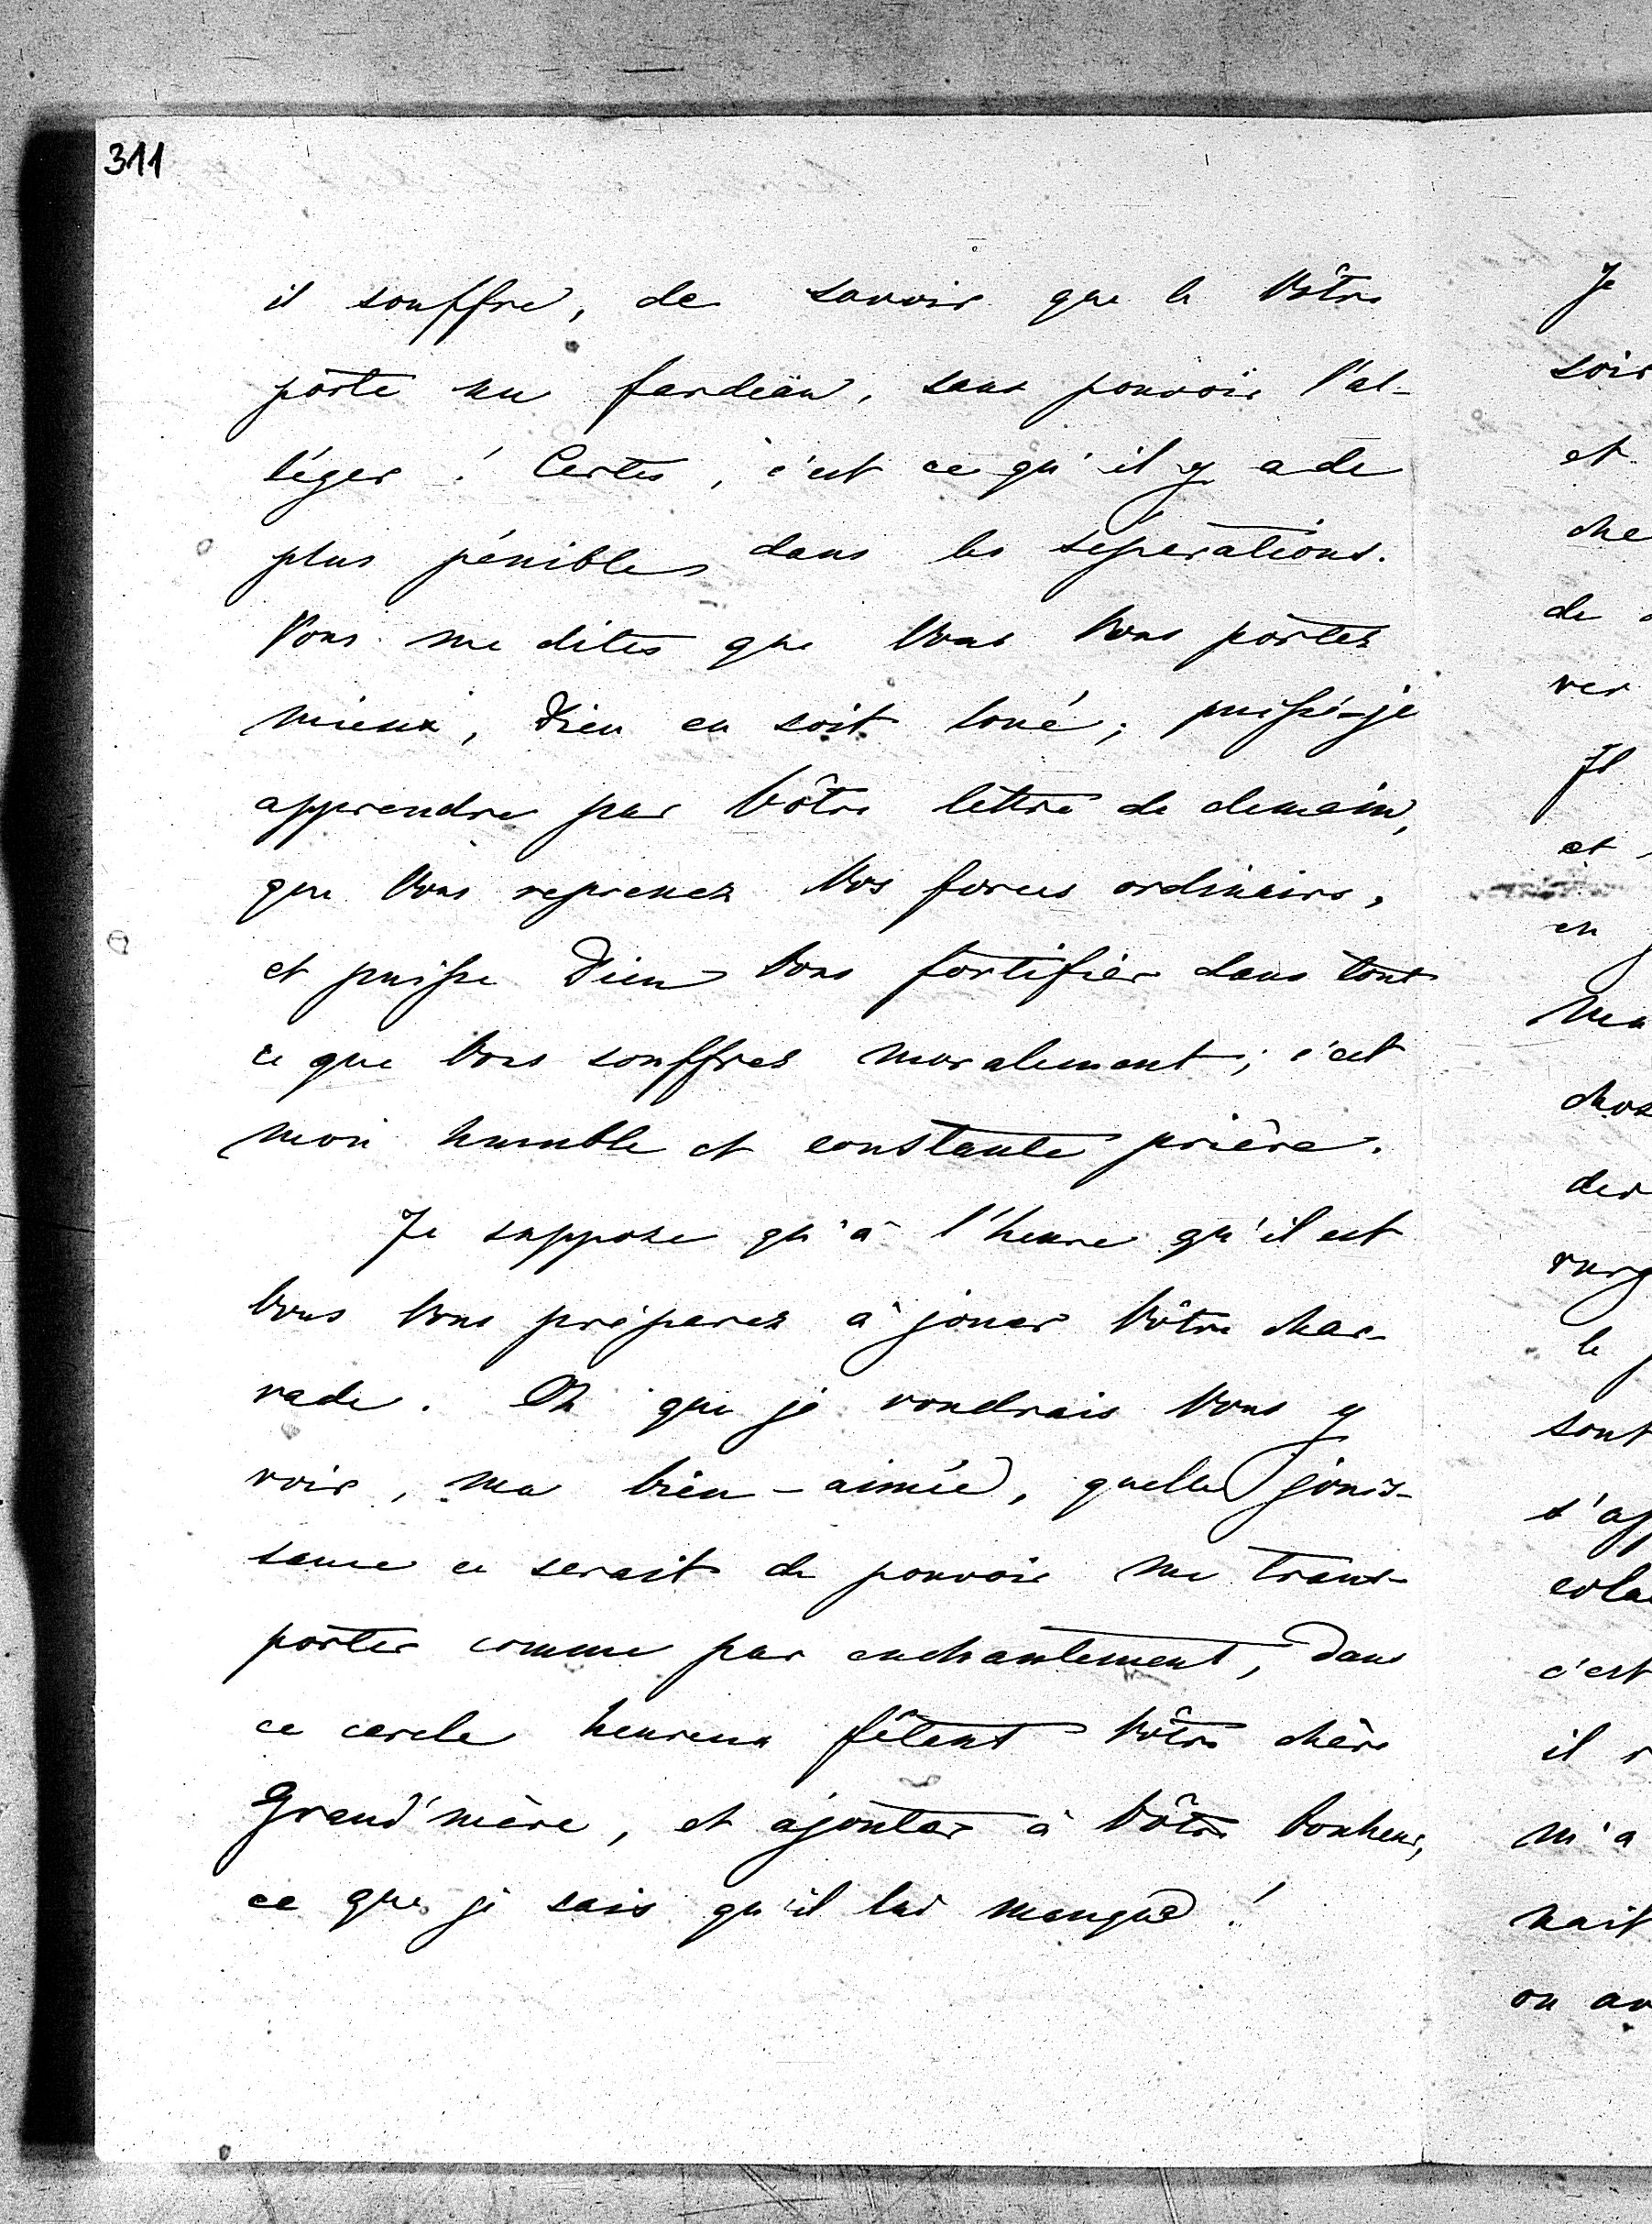 311
il souffre, de savoir que le Vôtre
porte un fardeau, sans pouvoir l'al-
léger ! Certes, c'est ce qu'il y a de
plus pénible dans les séparations.
Vous me dites que Vous Vous portez
mieux, Dieu en soit loué; puissé-je
apprendre par Vôtre lettre de demain,
que Vous reprenez Vos forces ordinaires,
et puisse Dieu Vous fortifier dans tout
ce que Vous souffrez moralement; c'est
mon humble et constante prière.
Je suppose qu'à l'heure qu'il est
Vous Vous préparez à jouer Vôtre char-
rade. Oh que je voudrais Vous y
voir, ma bien-aimée, quelle jouis-
sance ce serait de pouvoir me trans-
porter comme par enchantement, dans
ce cercle heureux fêtant Vôtre chère
Grand'mère, et ajouter à Vôtre bonheur,
ce que je sais qu'il lui manque !
Je
soir
et
che
de
ver
Il
et
en
chos
der
le
sont
s'ap
c'est
il
m'a
nait
on av